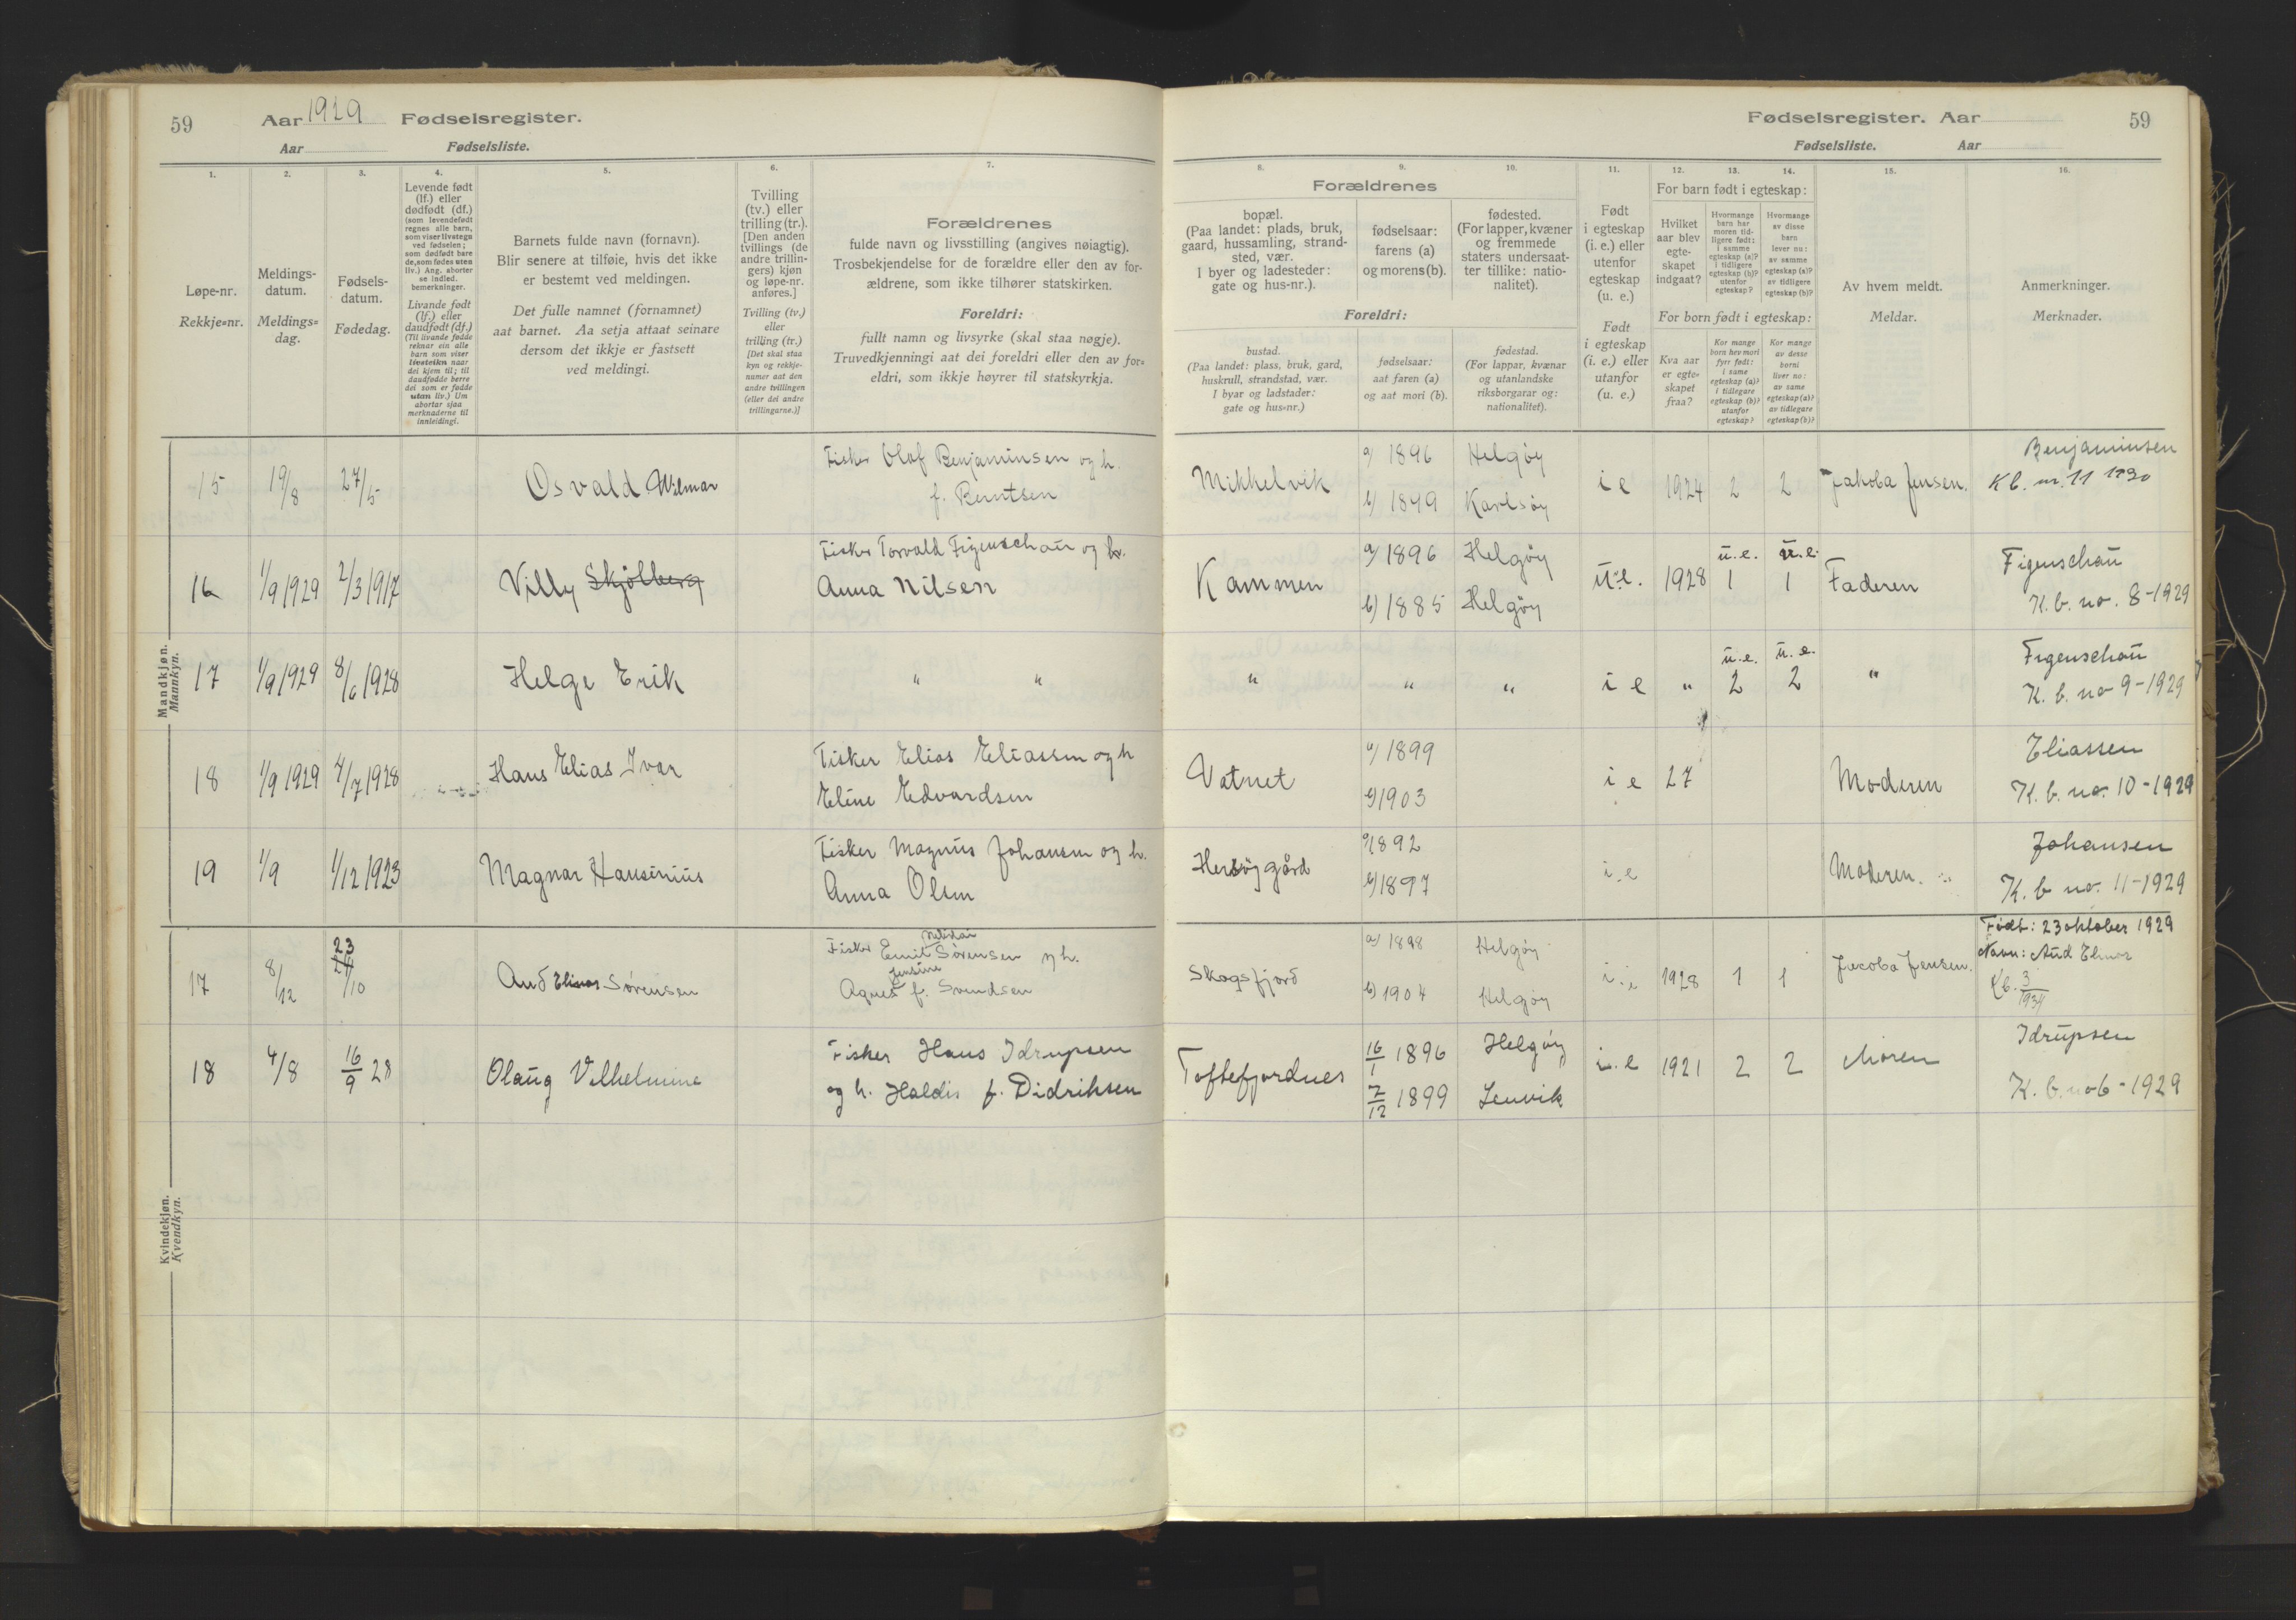 59 Aar 1929 Fødselsregister.
Aar Fødselsliste.
1. 2. 3. 4. 5. 6. 7.
Løpe-nr.
Rekkje-nr.
Meldings-
datum.
Meldings-
dag.
Fødsels-
datum.
Fødedag.
Levende født
(lf.) eller
dødfødt (df.)
(som levendefødt
regnes alle barn,
som viser livstegn
ved fødselen;
som dødfødt bare
de, som fødes uten
liv.) Ang. aborter
se indled.
bemerkninger.
Livande født
(lf.) eller
daudfødt (df.)
(Til livande fødde
reknar ein alle
barn som viser
livsteikn naar
dei kjem til; til
daudfødde berre
dei som er fødde
utan liv.) Um
abortar sjaa
merknaderne til
innleidingi.
Barnets fulde navn (fornavn).
Blir senere at tilføie, hvis det ikke
er bestemt ved meldingen.
Det fulle namnet (fornamnet)
aat barnet. Aa setja attaat seinare
dersom det ikkje er fastsett
ved meldingi.
Tvilling
(tv.) eller
trilling (tr.).
[Den anden
tvillings (de
andre trillin-
gers) kjøn
og løpe-nr.
anføres.]
Tvilling (tv.)
eller
trilling (tr.)
[Det skal staa
kyn og rekkje-
numer aat den
andre tvillingen
(eller dei andre
trillingarne.)]
Forældrenes
fulde navn og livsstilling (angives nøiagtig).
Trosbekjendelse for de forældre eller den av for-
ældrene, som ikke tilhører statskirken.
Foreldri:
fullt namn og livsyrke (skal staa nøgje).
Truvedkjenningi aat dei foreldri eller den av for-
eldri, som ikkje høyrer til statskyrkja.
Mandkjøn.
Mannkyn.
15 19/8 27/5 Osvald Wilmar Fisker Olof Benjaminsen og h.
f. Berntsen
16 1/9 1929 2/3 1917 Villy Skjølberg Fisker Torvald Figenschau og h.
Anna Nilsen
17 1/9 1929 8/6 1928 Helge Erik " "
18 1/9 1929 4/7 1928 Hans Elias Ivar Fisker Elias Eliassen og h
Eline Edvardsen
19 1/9 1/12 1923 Magnar Hansinius Fisker Magnus Johansen og h.
Anna Olsen
Kvindekjøn.
Kvendkyn.
17 8/12 23 24/10 Aud Elinor Sørensen Fisker Emil Sørensen og h.
Agnes Jensine f. Svendsen
18 4/8 16/9 28 Olaug Vilhelmine Fisker Hans Idrupsen
og h. Haldis f. Didriksen
Fødselsregister. Aar 59
Fødselsliste. Aar
8. 9. 10. 11. 12. 13. 14. 15. 16.
Forældrenes
bopæl.
(Paa landet: plads, bruk,
gaard, hussamling, strand-
sted, vær.
I byer og ladesteder:
gate og hus-nr.).
fødselsaar:
farens (a)
og morens (b).
fødested.
(For lapper, kvæner
og fremmede
staters undersaat-
ter tillike: natio-
nalitet).
Foreldri:
bustad.
(Paa landet: plass, bruk, gard,
huskrull, strandstad, vær.
I byar og ladstader:
gate og hus-nr.)
fødselsaar:
aat faren (a)
og aat mori (b).
fødestad.
(For lappar, kvænar
og utanlandske
riksborgarar og:
nationalitet).
Født
i egteskap
(i. e.) eller
utenfor
egteskap
(u. e.)
Født
i egteskap
(i. e.) eller
utanfor
(u. e.)
For barn født i egteskap:
Hvilket
aar blev
egte-
skapet
indgaat?
Hvormange
barn har
moren tid-
ligere født:
i samme
egteskap (a)?
i tidligere
egteskap (b)?
utenfor
egteskap?
Hvormange
av disse
barn
lever nu:
av samme
egteskap (a)?
av tidligere
egteskap (b)?
For born født i egteskap:
Kva aar
er egte-
skapet
fraa?
Kor mange
born hev mori
fyrr født:
i same
egteskap (a)?
i tidlegare
egteskap (b)?
utanfor
egteskap?
Kor mange
av desse
borni
liver no:
av same
egteskap (a)?
av tidlegare
egteskap (b)?
Av hvem meldt.
Meldar.
Anmerkninger.
Merknader.
Mikkelvik a) 1896 Helgøy i e 1924 2 2 Jakoba Jensen. Benjaminsen
b) 1899 Karlsøy Kb. nr. 11 1930
Kammen a) 1896 Helgøy u.e. 1928 u.e. 1 u.e. 1 Faderen Figenschau
b) 1885 Helgøy K.b. no. 8-1929
" " " i e " u.e. 2 u.e. 2 " Figenschau
K.b. no 9-1929
Vatnet a) 1899 i e 27 Moderen Eliassen
b) 1903 K.b. no. 10-1929
Hersøygård a) 1892 i.e Moderen. Johansen
b) 1897 K.b no. 11-1929
Skogsfjord a) 1898 Helgøy i.i 1928 1 1 Jacoba Jensen. Født: 23 oktober 1929
b) 1904 Helgøy Navn: Aud Elinor
Kb. 3/1934
Toftefjordnes 16/1 1896 Helgøy i.e 1921 2 2 Moren Idrupsen
7/12 1899 Lenvik K.b. no 6-1929